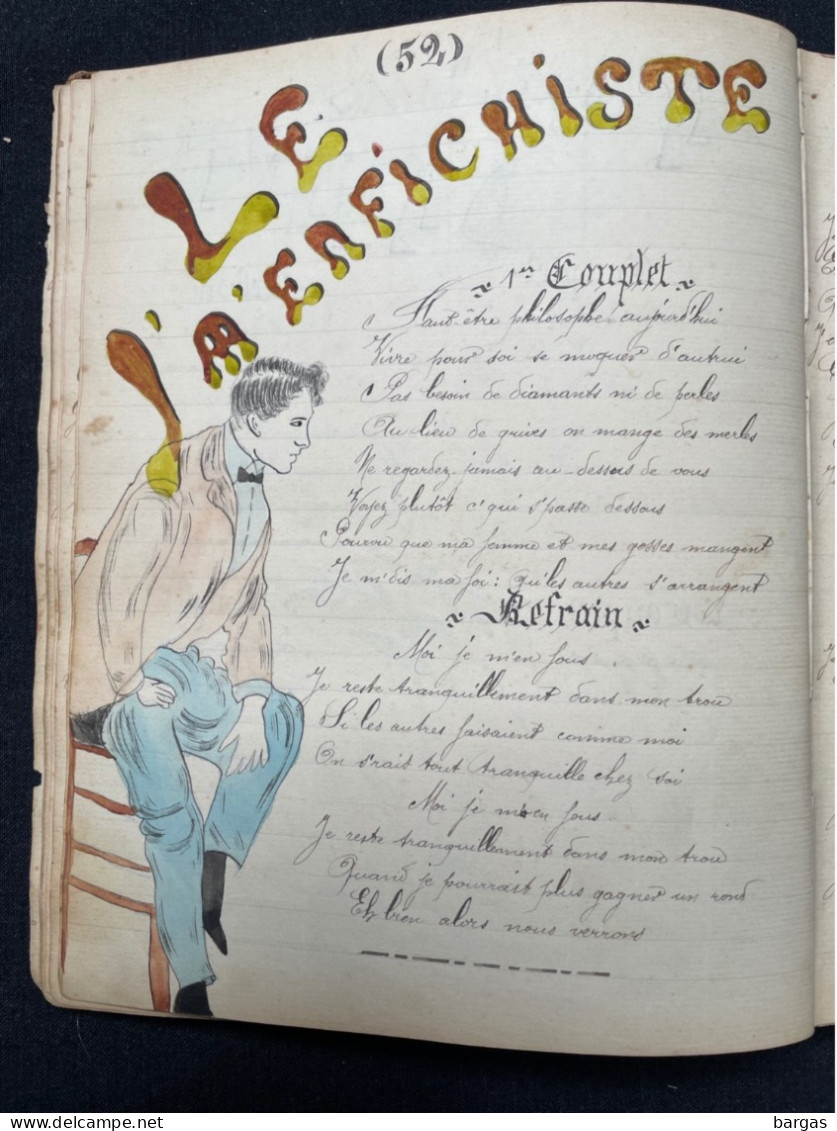 (52)
LE
J'M'ENFICHISTE
1er Couplet
Faut-être philosophe aujourd'hui
Vivre pour soi se moquer d'autrui
Pas besoin de diamants ni de perles
Au lieu de grives on mange des merles
Ne regardez jamais au-dessus de vous
Voyez plutôt c'qui s'passe dessous
Pourvu que ma femme et mes gosses mangent
Je m'dis ma foi : qu'les autres s'arrangent
Refrain
Moi je m'en fous
Je reste tranquillement dans mon trou
Si les autres faisaient comme moi
On s'rait tout tranquille chez soi
Moi je m'en fous
Je reste tranquillement dans mon trou
Quand je pourrait plus gagner un rond
Eh bien alors nous verrons
bargas